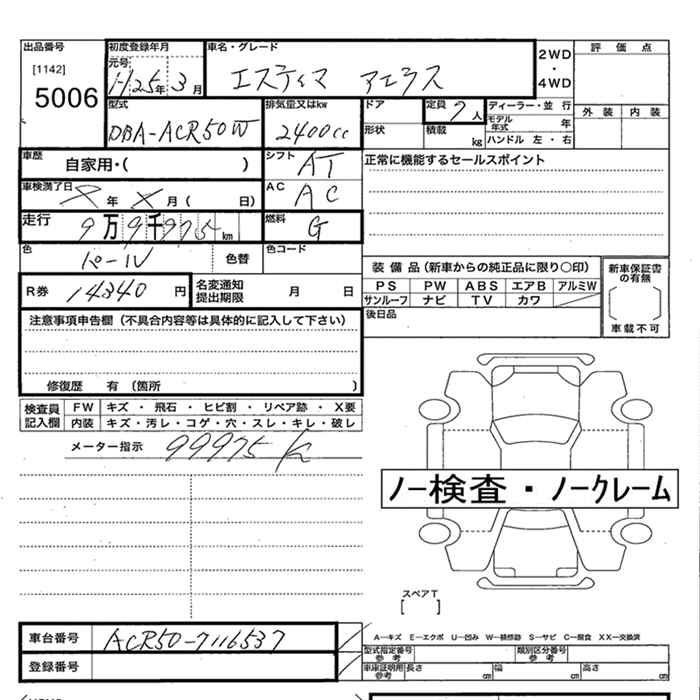 出品番号
[1142]
5006
初度登録年月
元号
H25年3月
車名・グレード
エスティマ アエラス
2WD
・
4WD
評価点
外装 内装
型式
DBA-ACR50W
排気量又はkw
2400cc
ドア
形状
定員 7人
積載 kg
ディーラー・並行
モデル年式 年
ハンドル 左・右
車歴
自家用・( )
シフト
AT
正常に機能するセールスポイント
車検満了日
年 月( 日)
AC
AC
走行
9万9千975km
燃料
G
色
パール
色替
色コード
R券 14340円
名変通知
提出期限
月 日
装備品(新車からの純正品に限り〇印)
PS PW ABS エアB アルミW
サンルーフ ナビ TV カワ
後日品
新車保証書
の有無
車載不可
注意事項申告欄(不具合内容等は具体的に記入して下さい)
修復歴 有(箇所 )
検査員
記入欄
FW キズ・飛石・ヒビ割・リペア跡・X要
内装 キズ・汚レ・コゲ・穴・スレ・キレ・破レ
メーター指示 99975K
ノー検査・ノークレーム
スペアT
[ ]
車台番号 ACR50-7116537
登録番号
A―キズ E―エクボ U―凹み W―補修跡 S―サビ C―腐食 XX―交換済
型式指定番号
参考
類別区分番号
参考
車庫証明用
参考
長さ cm 幅 cm 高さ cm